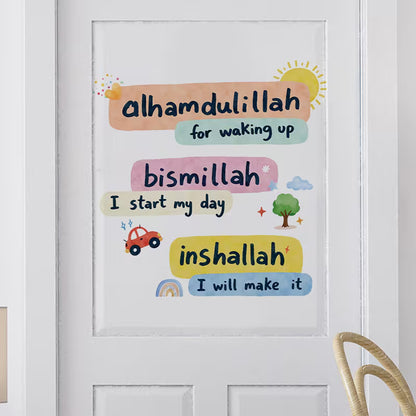 alhamdulillah
for waking up
bismillah
I start my day
inshallah
I will make it